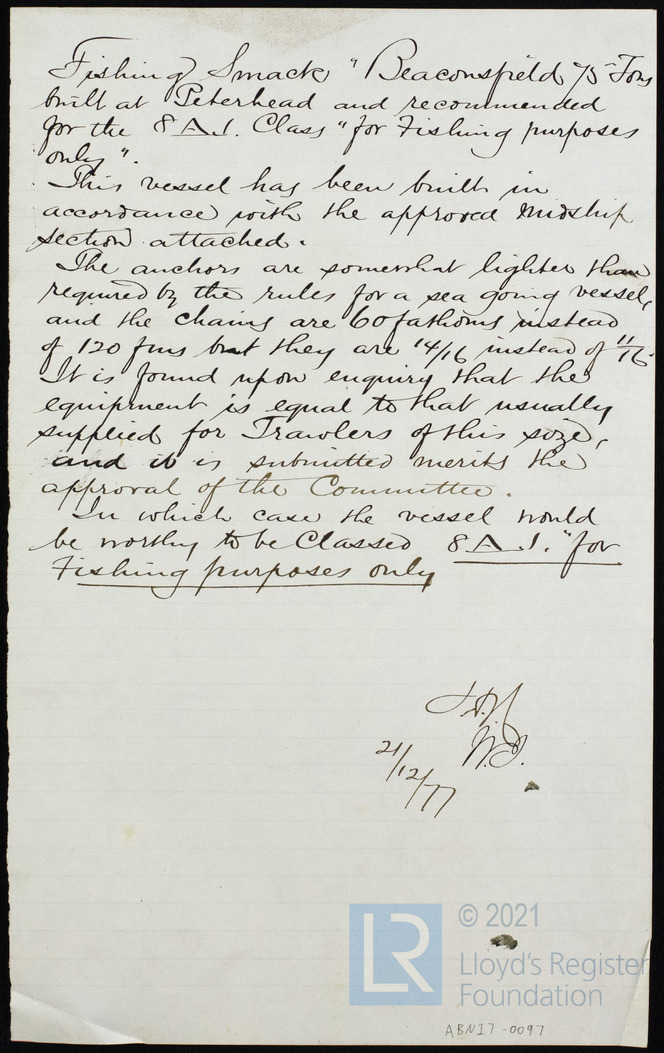 Fishing Smack "Beaconsfield 75 Tons
built at Peterhead and recommended
for the 8 A.1. Class "for Fishing purposes
only".
This vessel has been built in
accordance with the approved midship
section attached.
The anchors are somewhat lighter than
required by the rules for a sea going vessel,
and the chains are 60 fathoms instead
of 120 fms but they are 14/16 instead of 11/16.
It is found upon enquiry that the
equipment is equal to that usually
supplied for Trawlers of this size,
and it is submitted merits the
approval of the Committee.
In which case the vessel would
be worthy to be Classed 8 A.1. "for
Fishing purposes only
21/12/77
© 2021
LR
Lloyd's Register
Foundation
ABN17-0097